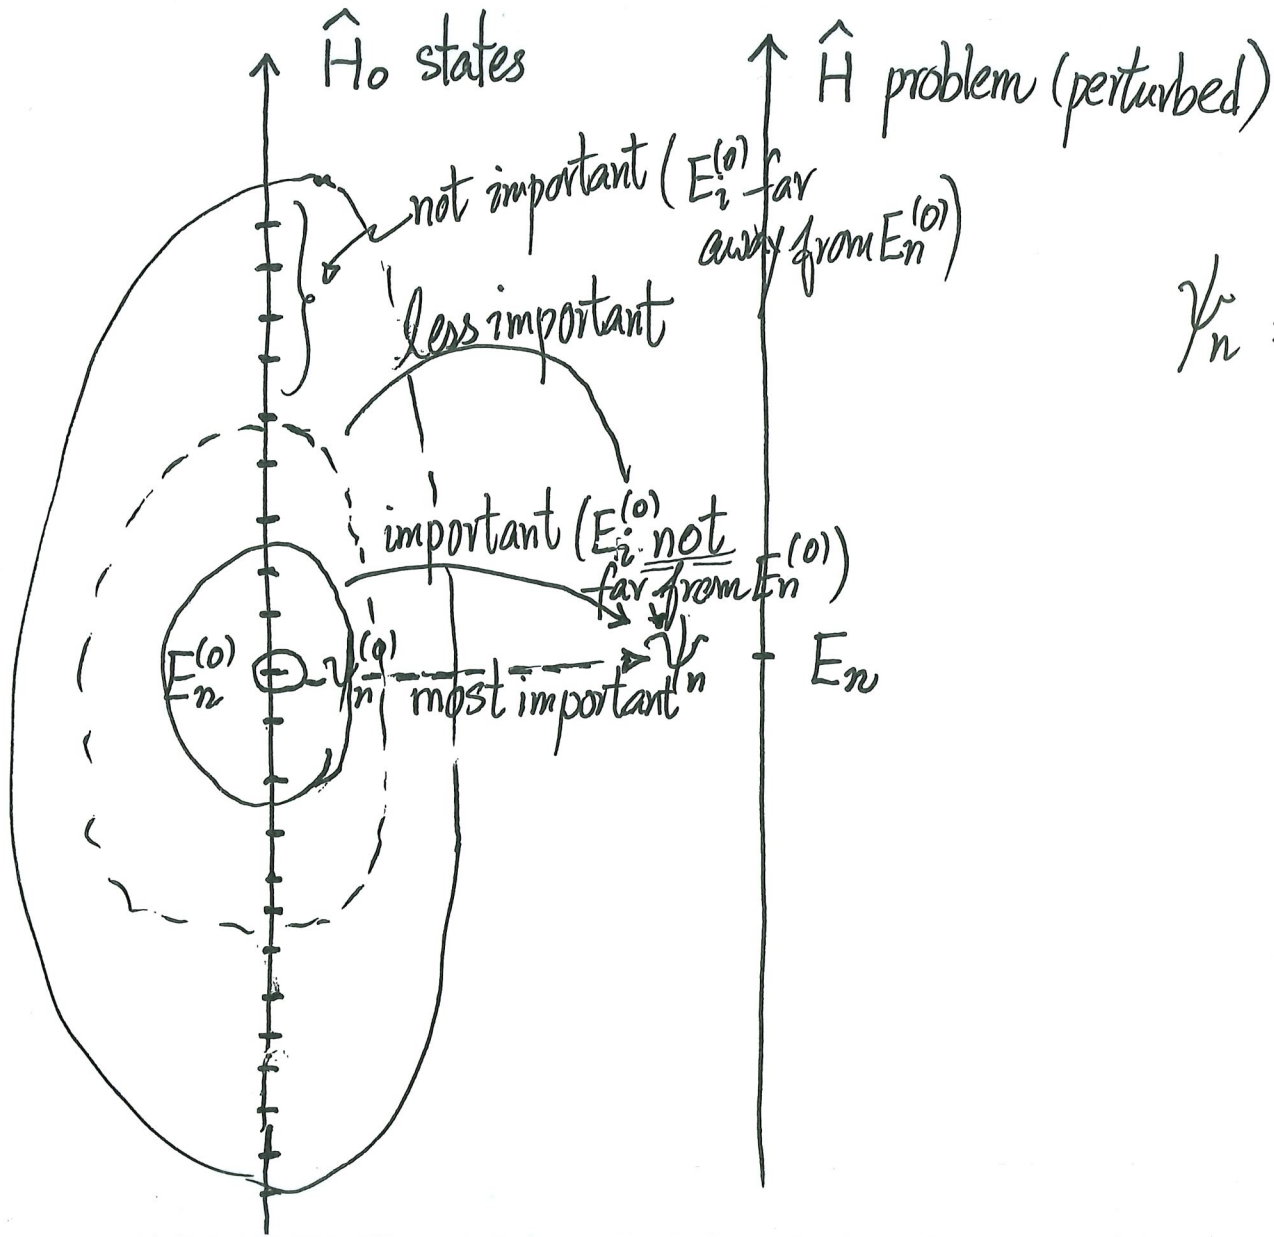 Ĥ₀ states
Ĥ problem (perturbed)
not important (E_i^(0) far
away from E_n^(0))
less important
ψ_n :
important (E_i^(0) not
far from E_n^(0))
E_n^(0) ψ_n^(0) most important ψ_n E_n